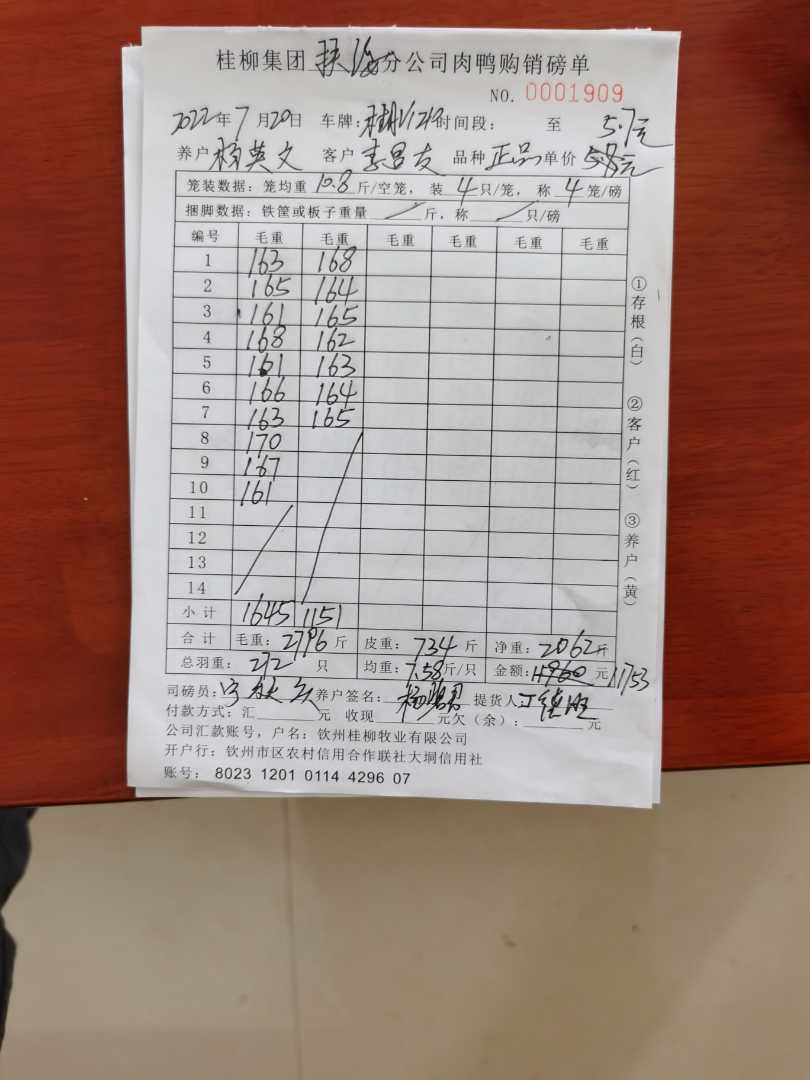 桂柳集团 扶海 分公司肉鸭购销磅单
NO. 0001909
2022年7月20日 车牌: 时间段: 至 5.7元
养户 杨英文 客户 李昌友 品种 正品 单价 5.8元
笼装数据: 笼均重 10.8 斤/空笼, 装 4 只/笼, 称 4 笼/磅
捆脚数据: 铁筐或板子重量 / 斤, 称 / 只/磅
编号 毛重 毛重 毛重 毛重 毛重 毛重
1 163 168
2 165 164
3 161 165
4 168 162
5 161 163
6 166 164
7 163 165
8 170
9 167
10 161
11
12
13
14
小计 1645 1151
合计 毛重: 2796 斤 皮重: 734 斤 净重: 2062 斤
总羽重: 272 只 均重: 7.58 斤/只 金额: 11960 元 11753
司磅员: 养户签名: 提货人
付款方式: 汇 元 收现 元欠(余): 元
公司汇款账号, 户名: 钦州桂柳牧业有限公司
开户行: 钦州市区农村信用合作联社大垌信用社
账号: 8023 1201 0114 4296 07
①存根(白)
②客户(红)
③养户(黄)